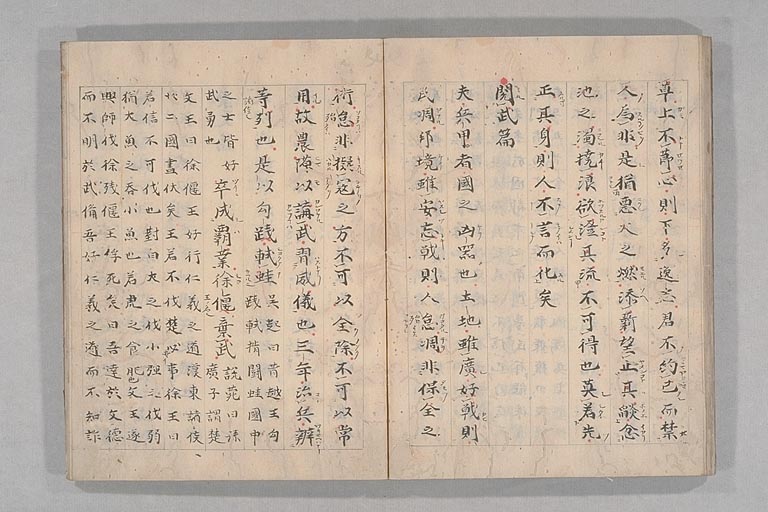 卑上不節心則下多逸志君不約己而禁
人為非是猶惡火之燃添薪望止其燄忿
池之濁撓浪欲澄其流不可得也莫若先
正其身則人不言而化矣
閲武篇
夫兵甲者國之凶器也土地雖廣好戰則
民凋邦境雖安忘戰則人怠凋非保全之
術怠非擬寇之方不可以全除不可以常
用故農隙以講武習威儀也三年治兵辨
等列也是以勾踐軾蛙
吳越曰昔越王勾
踐軾揖闘蛙國中
之士皆好
武勇也
卒成霸業徐偃棄武
説苑曰孫
廣子謂楚
文王曰徐偃王好行仁義之道漢東諸侯
卅二國盡伏矣王若不伐楚必事徐王曰
若信不可伐也對曰大之伐小強之伐弱
猶大魚之吞小魚也若虎之食肥也文王遂
興師伐徐殘偃王将死矣曰吾達於文德
而不明於武備吾好仁義之道而不知詐